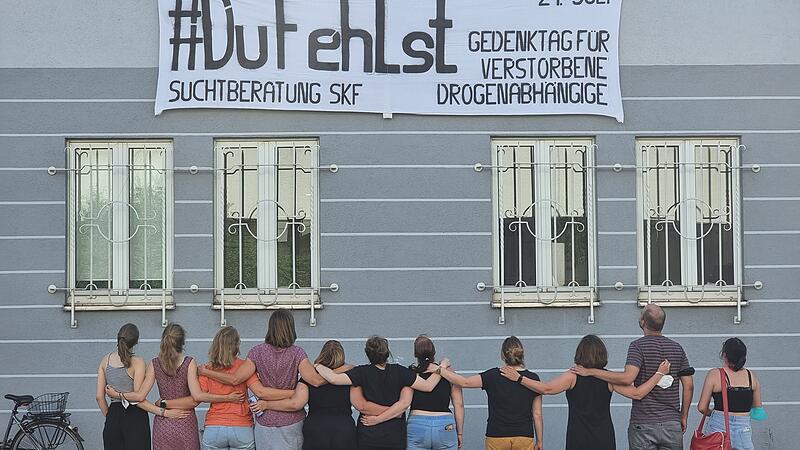 21. Juli
#DuFehlst
GEDENKTAG FÜR
VERSTORBENE
SUCHTBERATUNG SKF
DROGENABHÄNGIGE